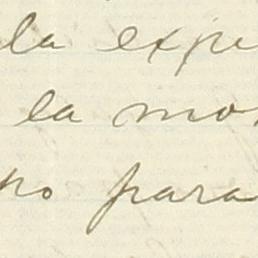 la expe
la mo
no para